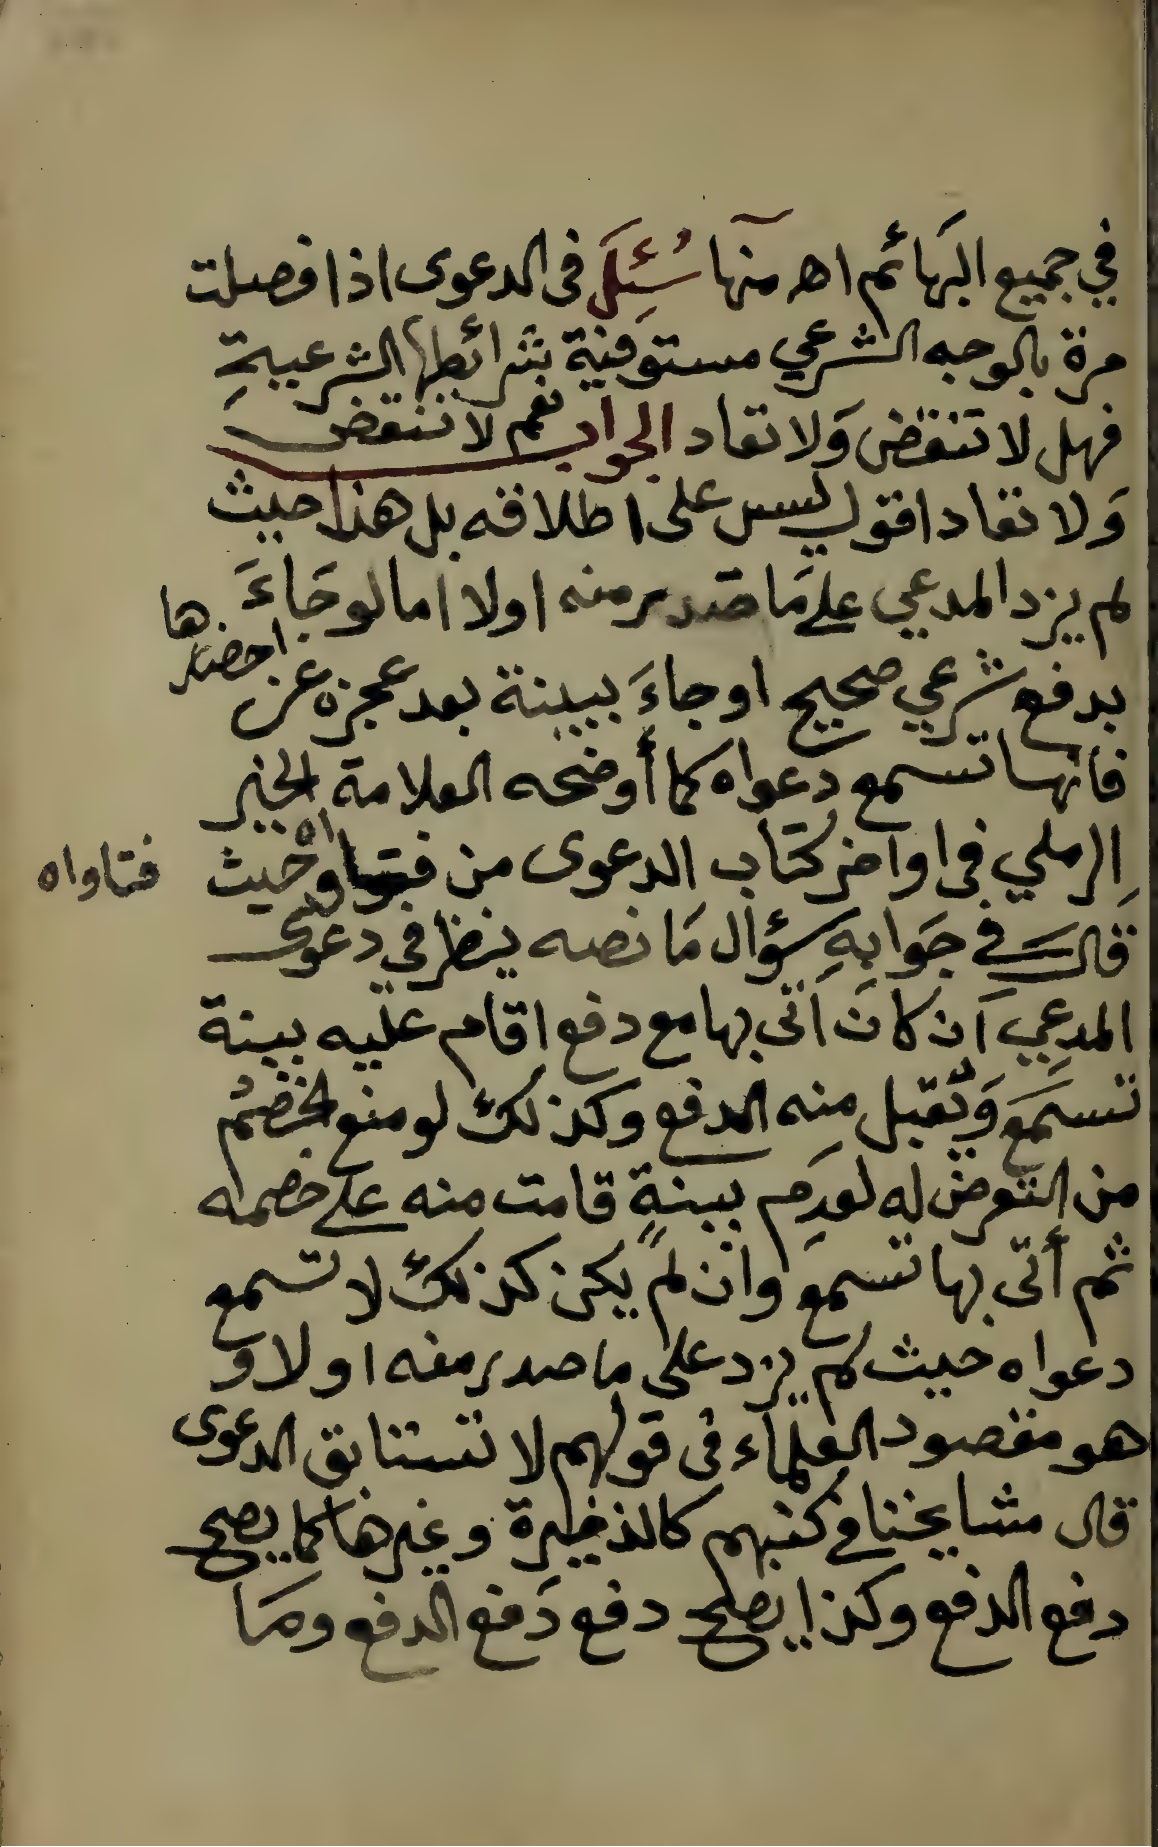 في جميع البهائم اه منها سُئِلَ فى الدعوى اذا فصلت
مرة بالوجه الشرعي مستوفية بشرائطها الشرعية
فهل لا تنقض وَلا تعاد الجواب نعم لا تنتقض
وَلا تعاد اقول ليس على اطلاقه بل هذا حيث
لم يزد المدعي على مَا صَدر منه اولا اما لو جَاءَ
بدفع شرعي صحيح او جاءَ ببينة بعد عجزه عن
احضارها
فانها تسمع دعواه كما أوضحه العلامة الخير
الرملي فى اواخر كتاب الدعوى من فتاواه حيث
فتاواه
قال في جَوابهِ سؤال مَا نصه ينظر في دعوى
المدعِي اَن كانَ اَتى بها مع دفع اقام عليه بينة
تسمَع وَتقبل منه الدفع وكذلك لو منع الخصم
من التعرض له لعدِم بينةٍ قامت منه على خصمه
ثم أتى بها تسمع وان لم يكن كذلك لا تسمع
دعواه حيث لم يزد على ما صدر منه اولا و
هو مقصود العلماء فى قولهم لا تستانق الدعوى
قال مشايخنا في كتبهم كالذخيرة وغيرها كما يصح
دفع الدفع وكذا يصح دفع دَفع الدفع ومَا